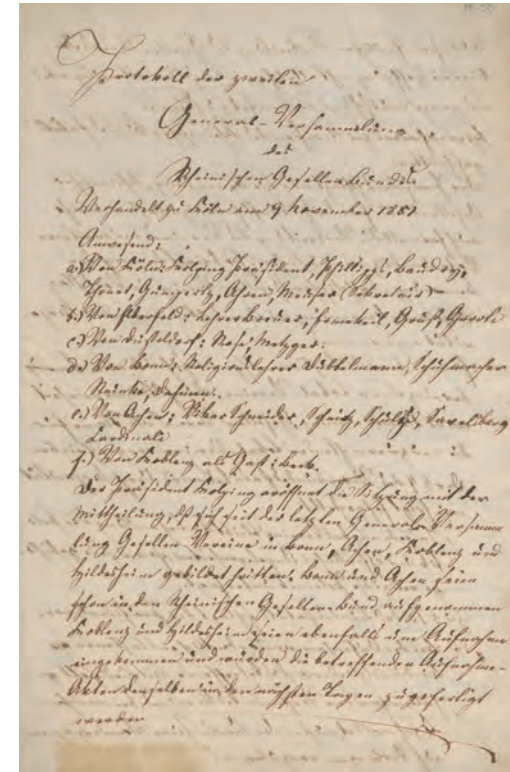 Protokoll der zweiten
General-Versammlung
des
Rheinischen Gesellenbundes
Verhandelt zu Köln am 9 November 1851
Anwesend:
a) Von Köln: Kolping Präsident,
Thönet, Ahren, (Sekretair)
b) Von Elberfeld: Lehrer Breuer,
c) Von Düsseldorf: Metzger.
d) Von Bonn: Religionslehrer Dubbelmann, Schuhmacher
e.) Von Achen: Vikar Schneider, Savelsberg
Cardinali
f.) Von Koblenz als Gast: Beck.
Der Präsident Kolping eröffnet die Sitzung mit der
Mittheilung, daß sich seit der letzten General-Versamm
lung Gesellen-Vereine in Bonn, Achen, Koblenz und
Hildesheim gebildet hätten. Bonn und Achen seien
schon in den Rheinischen Gesellen-Bund aufgenommen
Koblenz und Hildesheim seien ebenfalls um Aufnahme
eingekommen und würden die betreffenden Aufnahme-
Akten denselben in den nächsten Tagen zugefertigt
werden